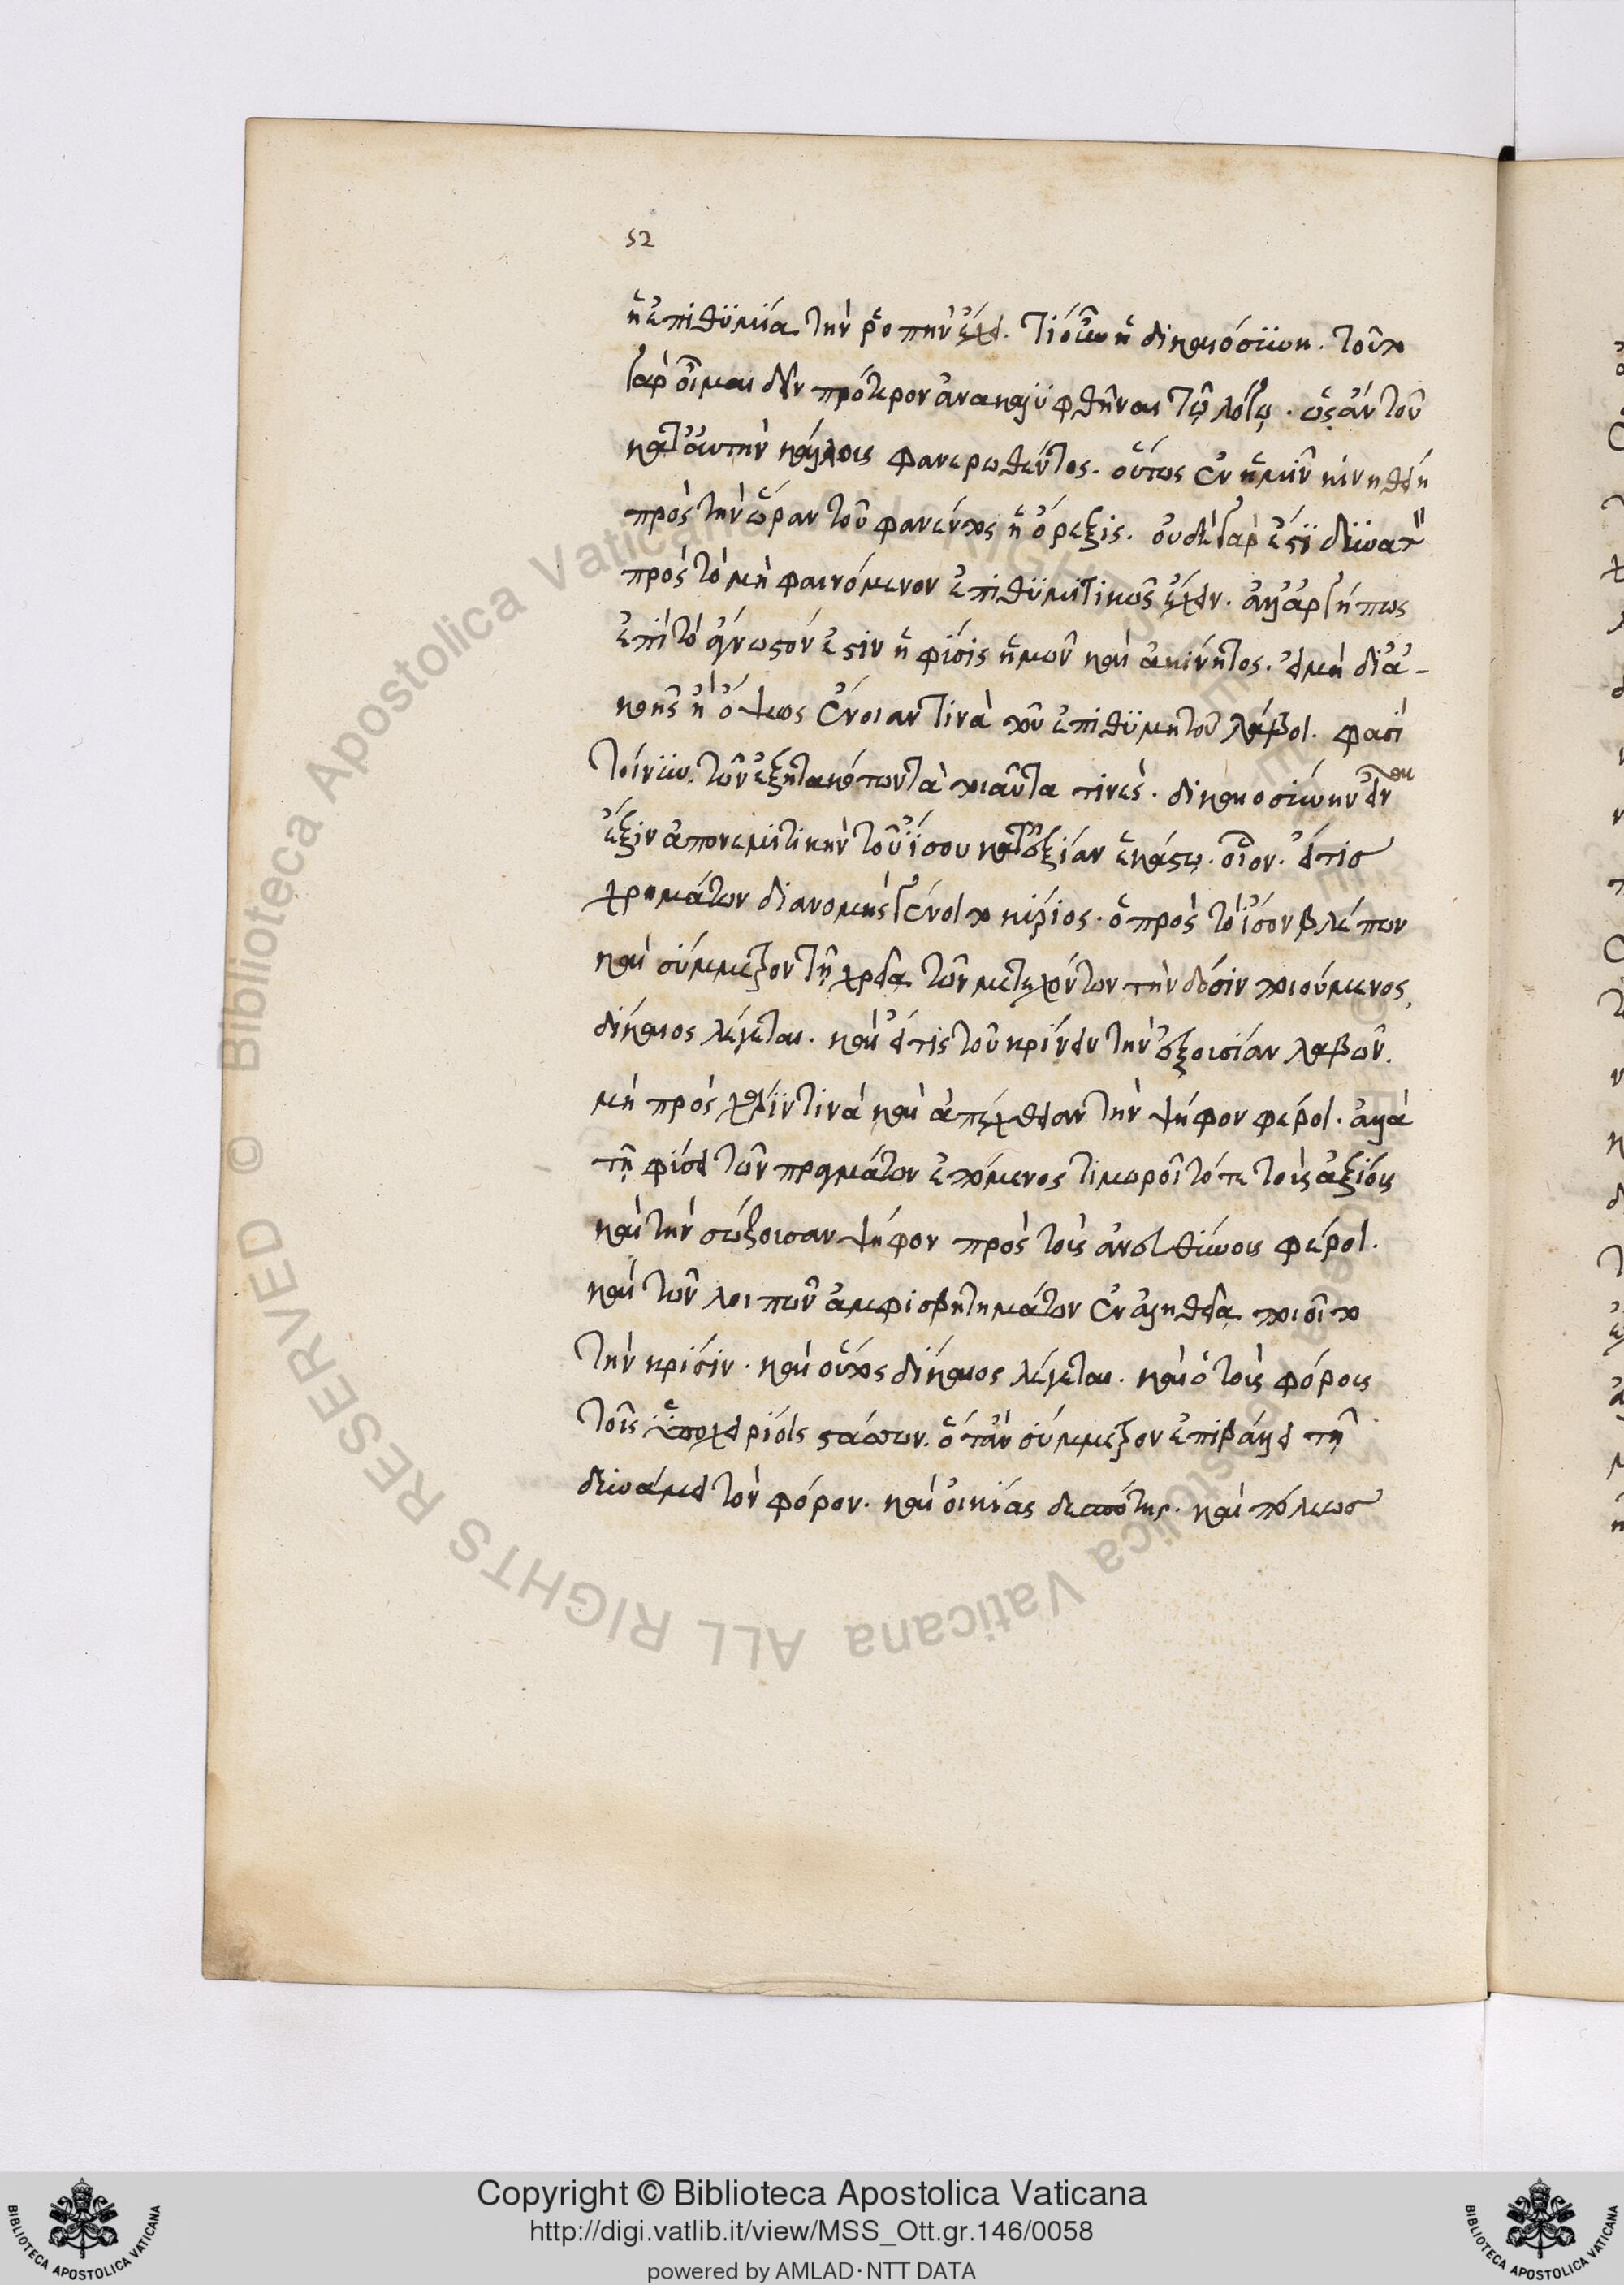 52
ἡ ἐπιθϋμία τὴν ῥοπὴν ἔχει. τί οὖν ἡ δικαιοσύνη. τοῦτο
γὰρ οἶμαι δεῖν πρότερον ἀνακαλυφθῆναι τῷ λόγῳ. ὡς ἂν τοῦ
κατ' αὐτὴν κάλλους φανερωθέντος. οὕτως ἐν ἡμῖν κινηθείη
πρὸς τὴν ὥραν τοῦ φανέντος ἡ ὄρεξις. οὐδὲ γὰρ ἐστὶ δυνατ
πρὸς τὸ μὴ φαινόμενον ἐπιθϋμιτικῶς ἔχειν. ἀλλ' ἀργή πως
ἐπὶ τὸ ἄγνωστόν ἐστιν ἡ φύσις ἡμῶν καὶ ἀκίνητος. εἰ μὴ δι' ἀ-
κοῆς ἢ ὄψεως ἔννοιαν τινὰ τοῦ ἐπιθϋμητοῦ λάβοι. φασὶ
τοίνυν τῶν ἐξητακότων τὰ τοιαῦτα τινὲς. δικαιοσύνην εἶναι
ἕξιν ἀπονεμιτικὴν τοῦ ἴσου κατ' ἀξίαν ἑκάστῳ. οἷον. εἴ τις
χρημάτων διανομῆς γένοιτο κύριος. ὁ πρὸς τὸ ἴσον βλέπων
καὶ σύμμετρον τῇ χρείᾳ τῶν μετεχόντων τὴν δόσιν ποιούμενος,
δίκαιος λέγεται. καὶ εἴ τις τοῦ κρίνειν τὴν ἐξουσίαν λαβὼν.
μὴ πρὸς χάριν τινὰ καὶ ἀπέχθειαν τὴν ψῆφον φέροι. ἀλλὰ
τῇ φύσει τῶν πραγμάτων ἑπόμενος τιμωροῖτό τε τοὺς ἀξίους
καὶ τὴν σώζουσαν ψῆφον πρὸς τοὺς ἀνευθύνους φέροι.
καὶ τῶν λοιπῶν ἀμφισβητημάτων ἐν ἀληθείᾳ ποιοῖτο
τὴν κρίσιν. καὶ οὗτος δίκαιος λέγεται. καὶ ὁ τοὺς φόρους
τοῖς ὑποχειρίοις τάσσων. ὅταν σύμμετρον ἐπιβάλλει τῇ
δυνάμει τὸν φόρον. καὶ οἰκίας δεσπότης. καὶ πόλεως
Copyright © Biblioteca Apostolica Vaticana
http://digi.vatlib.it/view/MSS_Ott.gr.146/0058
powered by AMLAD·NTT DATA